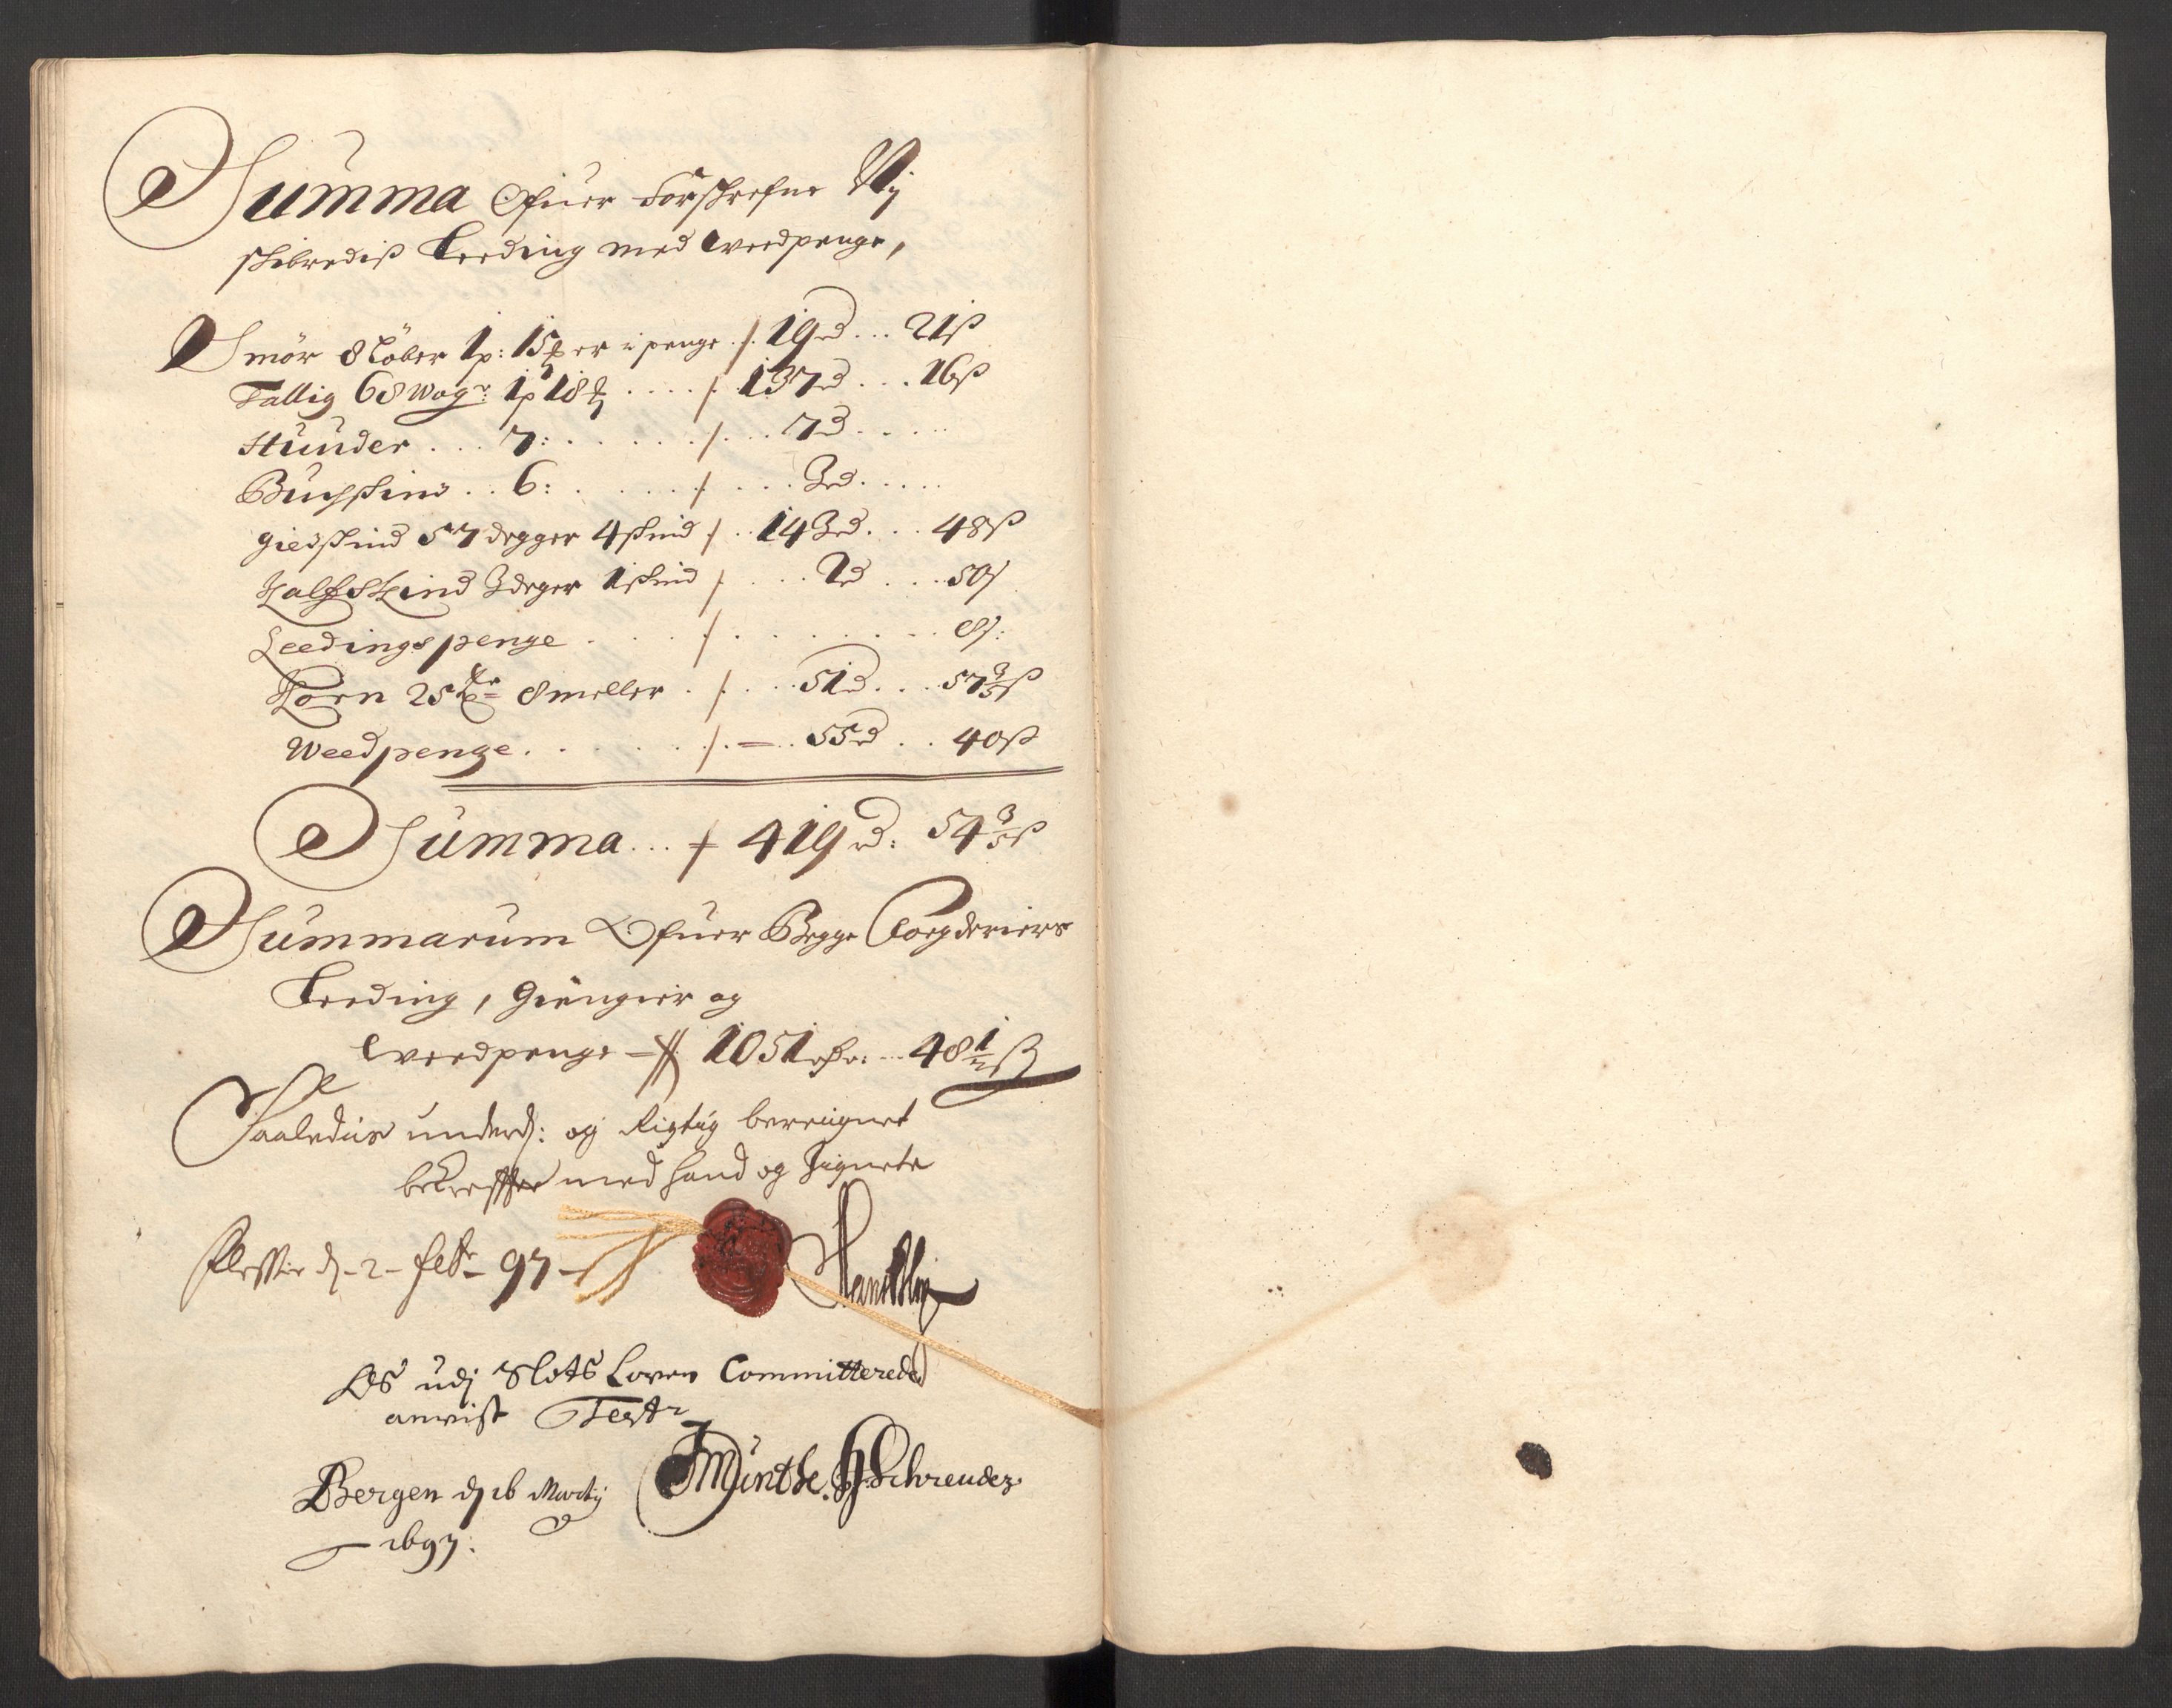 Summa Ofuer Forschrefne Vij
schibredis Leeding med Weedpenge,
Smör 8 Løber 1 p: 15 ℔ er i penge /. 19 rd ... 21 ß
Tallig 68 Wogr: 1 p 18 ℔ .... /. 137 rd ... 16 ß
Huuder ... 7: ...... /. ... 7 rd ....
Buchschind .. 6: ..... /. ... 3 rd .....
giedschind 57 degger 4 schind /. .. 143 rd ... 48 ß
Kalfskind 3 deger 1 schind /. ... 2 rd ... 50 ß
Leedingspenge .... /. ........ 8 ß:
Korn 25 8 meller . /. ... 51 rd ... 57 3/5 ß
Weedpenge ...... /. = .. 55 rd .. 40 ß
Summa ... /. 419 rd: 54 3/5 ß
Summarum Ofuer Begge Fogderiers
Leeding, Giengier og
Weedpenge - 1051 rdr: ... 48 1/2 ß
Saaledis underd: og Rigtig bereignet
bekreffter med haand og Signete
d - 2 - febr - 97 -
Os udj Slots Loven Committerede
anvist Test
Bergen d 16 Martij JMünthe. Schreuder
1697: